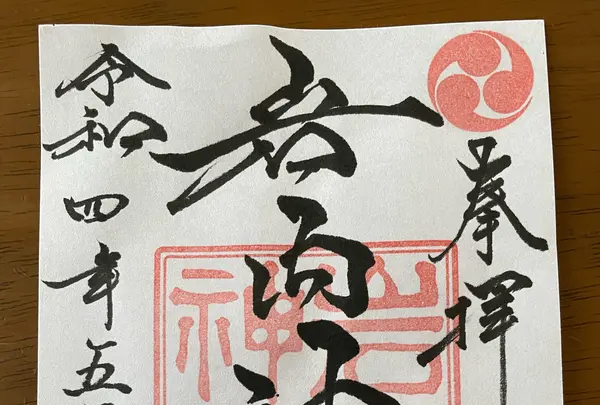 奉拝
岩
神
令和四年五